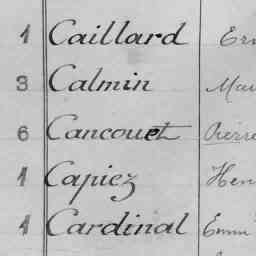 1 Caillard Ern
3 Calmin Mau
6 Cancouët Pierre
1 Capiez Hen
1 Cardinal Emm